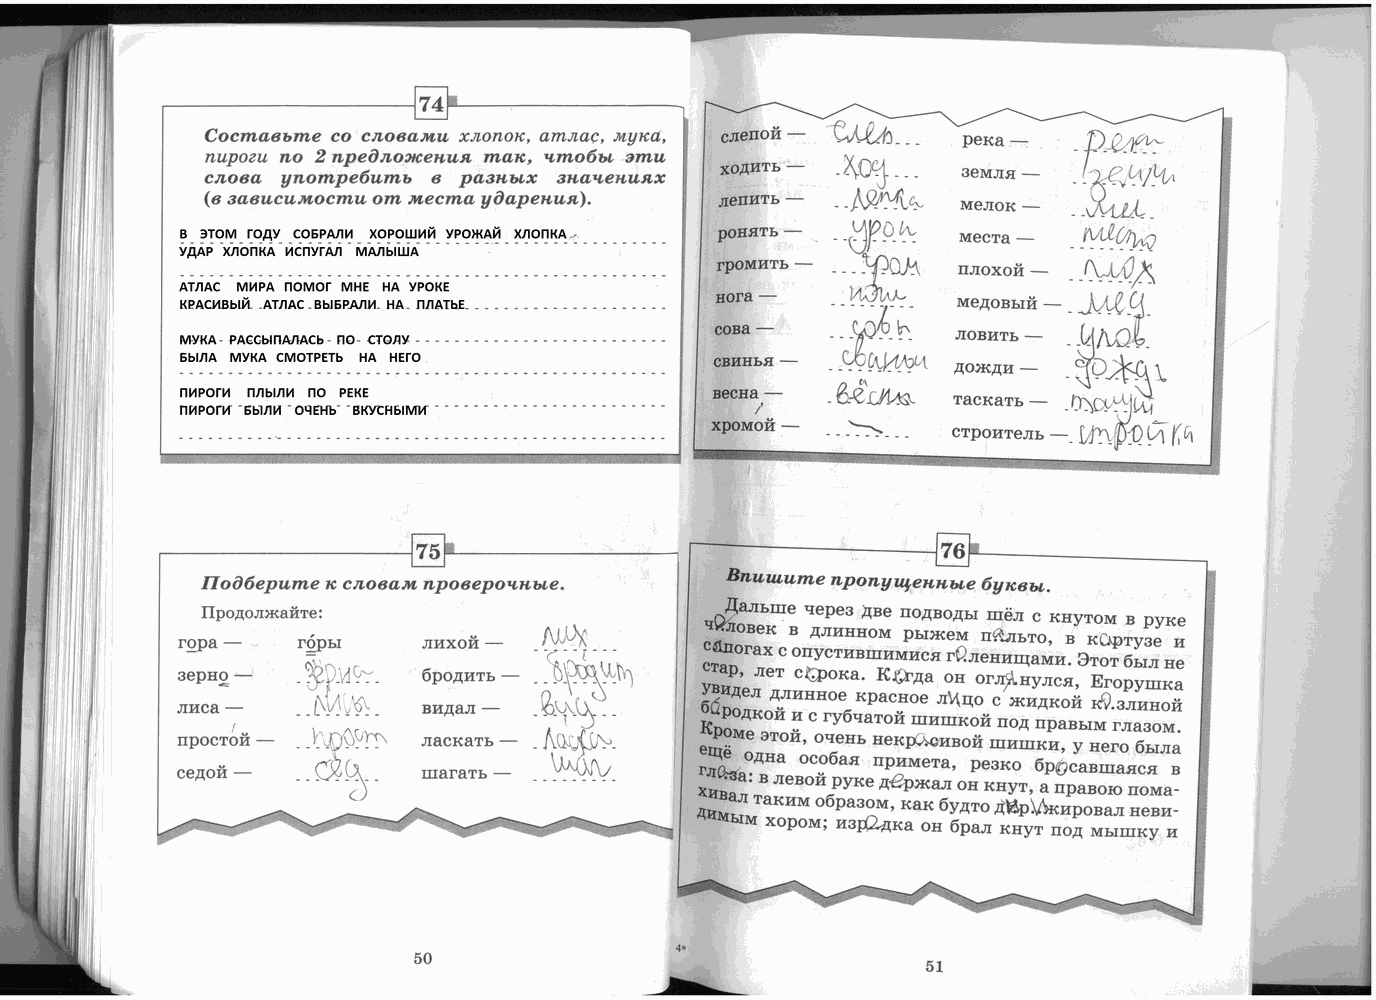 74
Составьте со словами хлопок, атлас, мука,
пироги по 2 предложения так, чтобы эти
слова употребить в разных значениях
(в зависимости от места ударения).
В ЭТОМ ГОДУ СОБРАЛИ ХОРОШИЙ УРОЖАЙ ХЛОПКА
УДАР ХЛОПКА ИСПУГАЛ МАЛЫША
АТЛАС МИРА ПОМОГ МНЕ НА УРОКЕ
КРАСИВЫЙ АТЛАС ВЫБРАЛИ НА ПЛАТЬЕ
МУКА РАССЫПАЛАСЬ ПО СТОЛУ
БЫЛА МУКА СМОТРЕТЬ НА НЕГО
ПИРОГИ ПЛЫЛИ ПО РЕКЕ
ПИРОГИ БЫЛИ ОЧЕНЬ ВКУСНЫМИ
75
Подберите к словам проверочные.
Продолжайте:
гора — го́ры лихой — лих
зерно — зёрна бродить — бродит
лиса — лисы видал — вид
простой — прост ласкать — ласка
седой — сед шагать — шаг
50
слепой — слеп река — реки
ходить — ход земля — земли
лепить — лепка мелок — мел
ронять — урон места — место
громить — гром плохой — плох
нога — ноги медовый — мёд
сова — совы ловить — улов
свинья — свиньи дожди — дождь
весна — вёсны таскать — тащит
хромой — строитель — стройка
76
Впишите пропущенные буквы.
Дальше через две подводы шёл с кнутом в руке
человек в длинном рыжем пальто, в картузе и
сапогах с опустившимися голенищами. Этот был не
стар, лет сорока. Когда он оглянулся, Егорушка
увидел длинное красное лицо с жидкой козлиной
бородкой и с губчатой шишкой под правым глазом.
Кроме этой, очень некрасивой шишки, у него была
ещё одна особая примета, резко бросавшаяся в
глаза: в левой руке держал он кнут, а правою пома-
хивал таким образом, как будто дирижировал неви-
димым хором; изредка он брал кнут под мышку и
4*
51